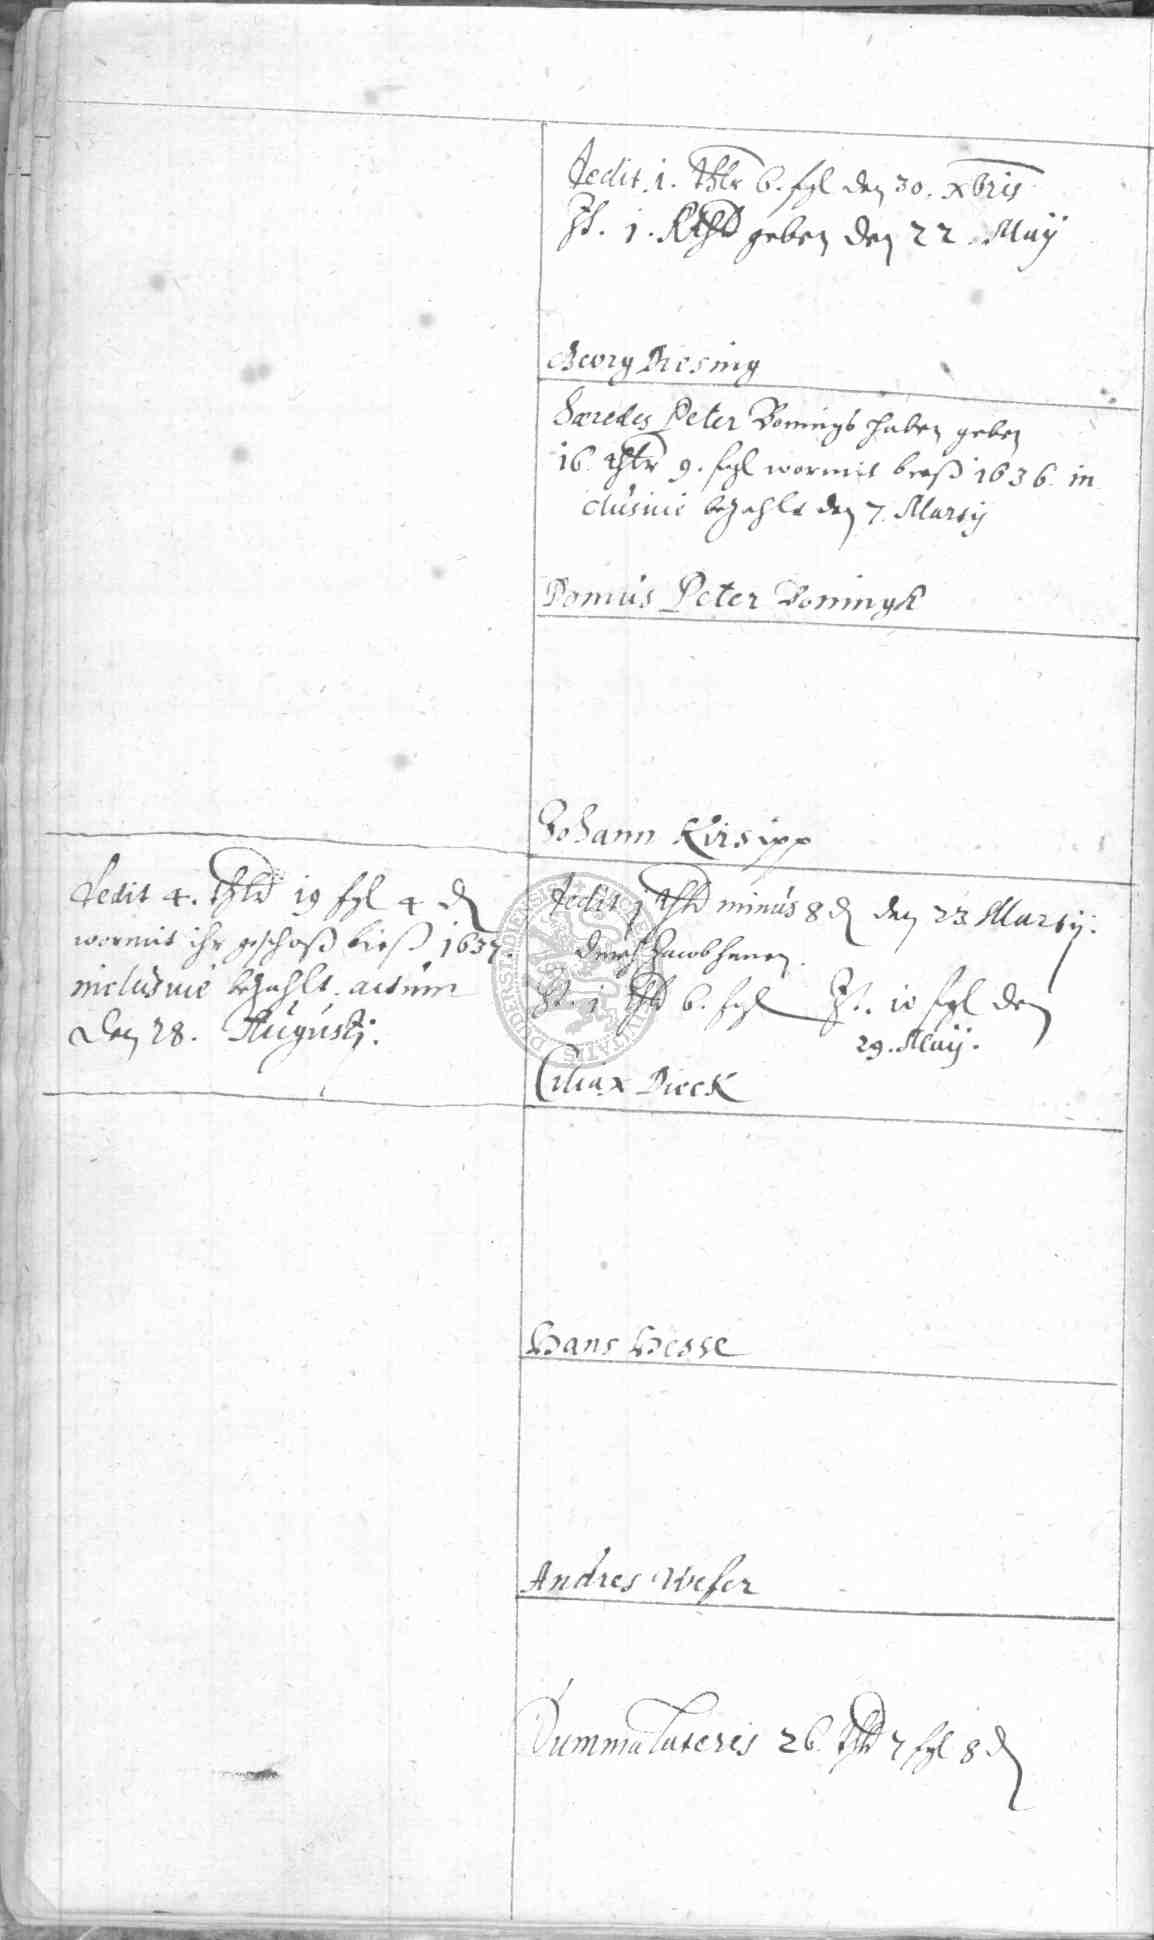 dedit 1. thlr 6. sgl den 30. xbris
It. 1. Rthlr geben den 22. Maÿ
Georg Diesing
Hæredes Peter Bönings haben geben
16. thlr 9. sgl wormit 1636. in
clusiue bezahlt den 7. Martij
Domus Peter Böningk
Johann Kirsipp
dedit 4. thlr 19 sgl 4 d
wormit ihr geschoß 1637.
inclusiue bezahlt. actum
den 28. Augusti.
dedit j thlr minus 8 d den 23 Martij.
durch Jacob
It. j thlr 6. sgl It. 10 sgl den
29. Maÿ.
Ciliax Dieck
Hans Hesse
Andres Weser
Summa lateris 26. thlr 7 sgl 8 d